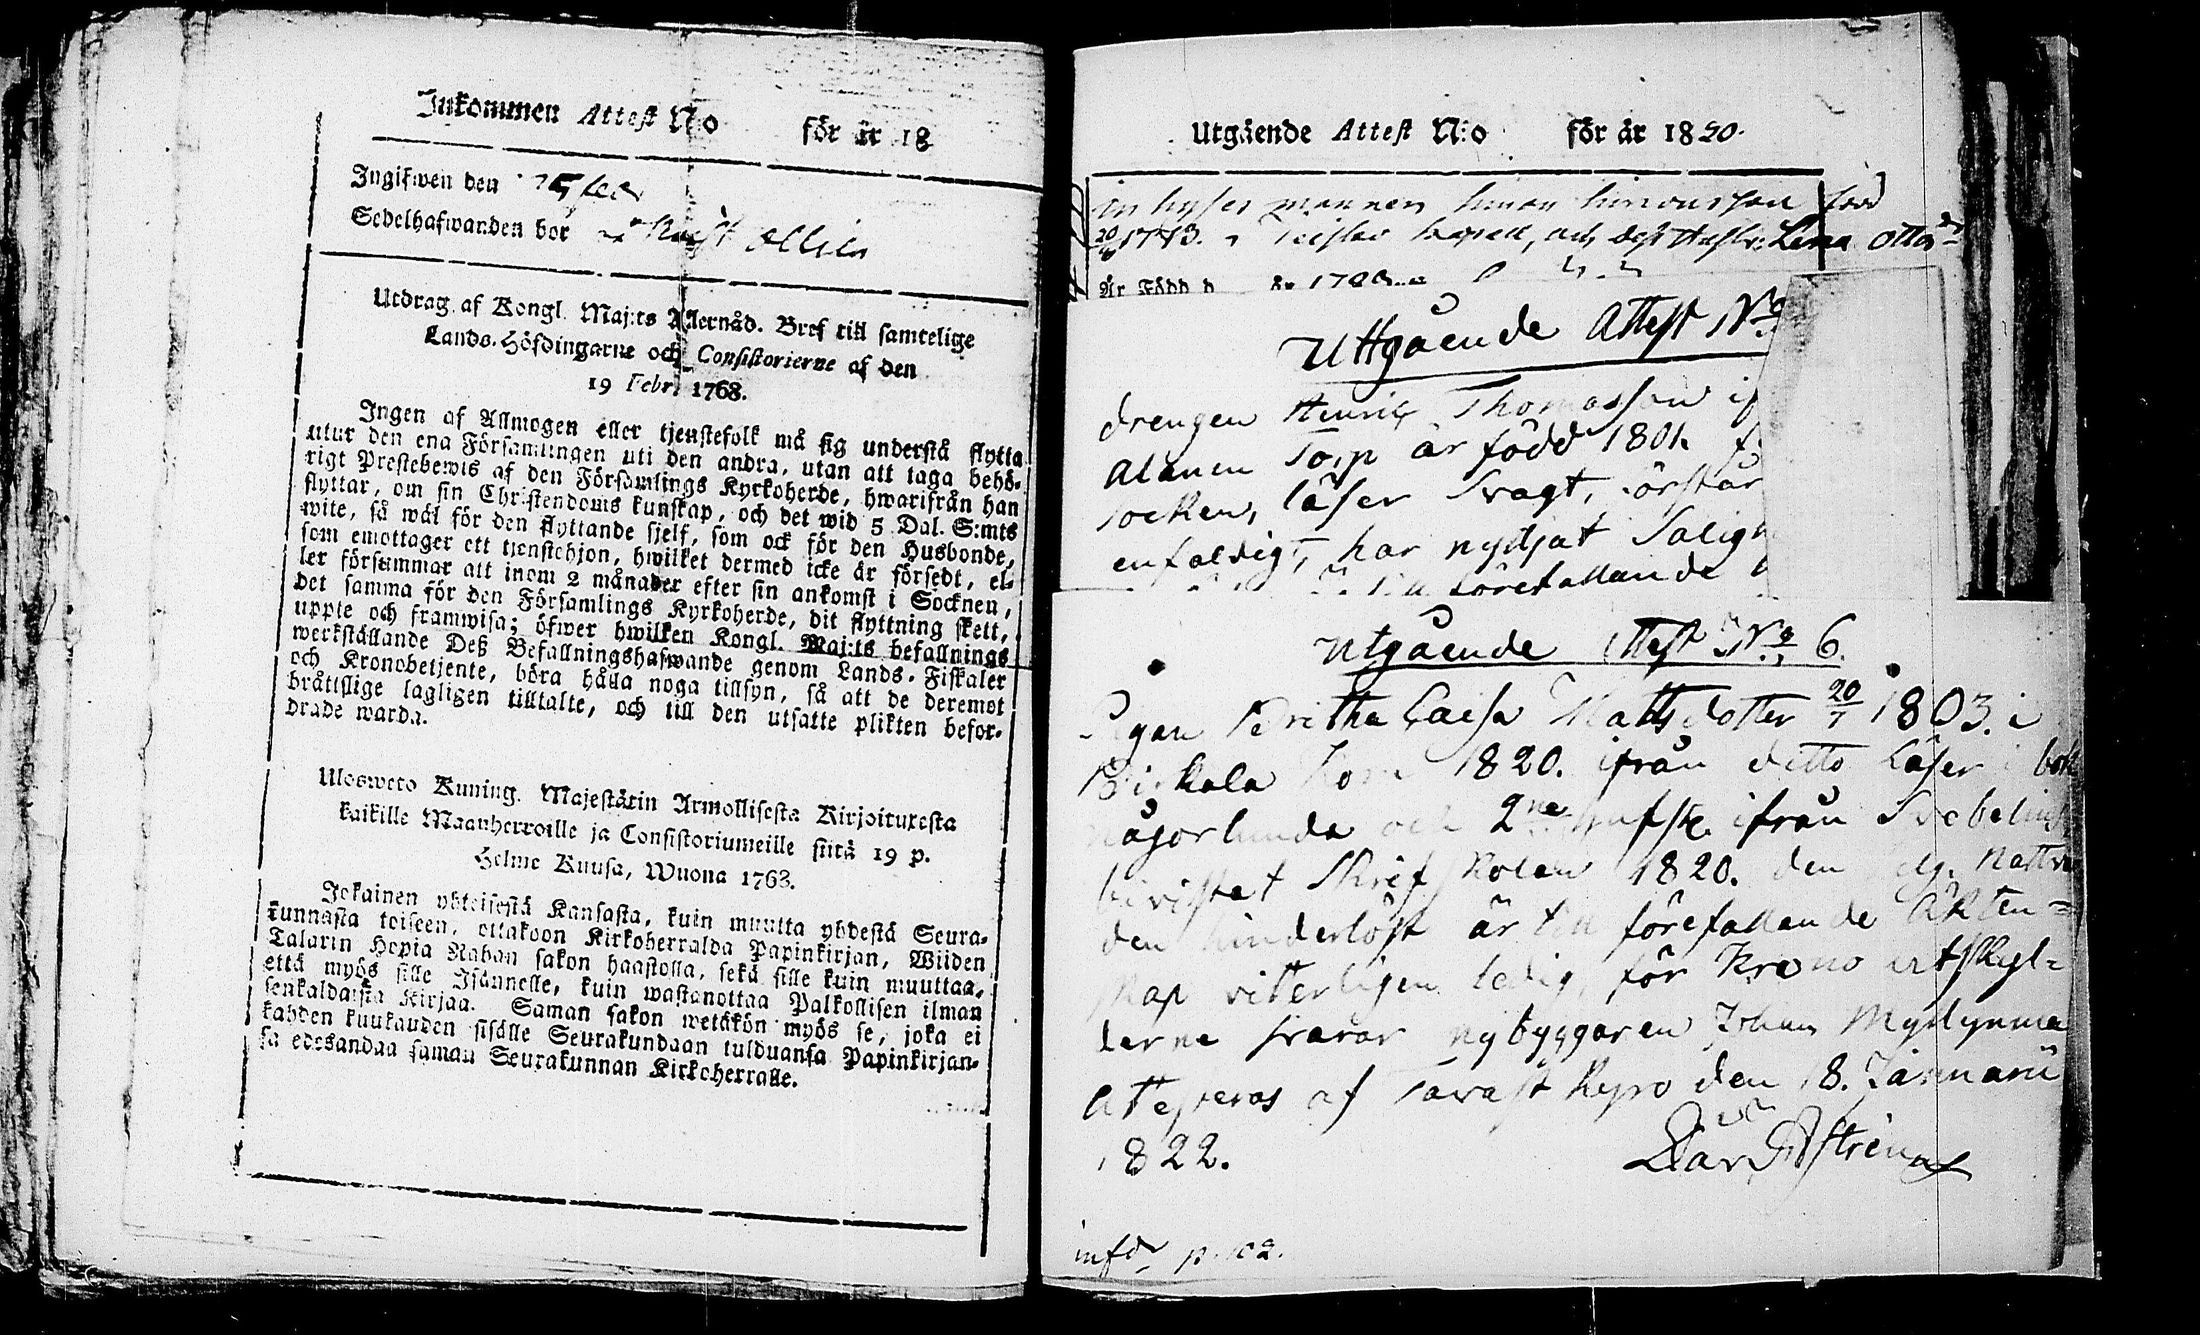 Inkommen Attest N:o för år 18
Ingifwen den 25 feb
Sedelhafwanden bor
Utdrag af Kongl. Maj:ts Allernåd. Bref till samtelige
Lands-Höfdingarne och Consistorierne af den
19 Febr. 1768.
Ingen af Allmogen eller tjenstefolk må sig understå flytta
utur den ena Församlingen uti den andra, utan att taga behö-
rigt Prestebewis af den Församlings Kyrkoherde, hwarifrån han
flyttar, om sin Christendoms kunskap, och det wid 5 Dal. S:mts
wite, så wäl för den flyttande sjelf, som ock för den Husbonde,
som emottager ett tjenstehjon, hwilket dermed icke är försedt, el-
ler försummar att inom 2 månader efter sin ankomst i Socknen,
det samma för den Församlings Kyrkoherde, dit flyttning skett,
uppte och framwisa; öfwer hwilken Kongl. Maj:ts befallnings
werkställande Deß Befallningshafwande genom Lands-Fiskaler
och Kronobetjente, böra hålla noga tillsyn, så att de deremot
bråttslige lagligen tilltalte, och till den utsatte plikten befor-
drade warda.
Ulosweto Kuning. Majestätin Armollisesta Kirjoituxesta
kaikille Maanherroille ja Consistoriumeille siitä 19 p.
Helme Kuusa, Wuona 1763.
Jokainen yhteisestä Kansasta, kuin muutta yhdestä Seura-
kunnasta toiseen, ottakoon Kirkoherralda Papinkirjan, Wiiden
Talarin Hopia Rahan sakon haastolla, sekä sille kuin muuttaa,
että myös sille Isännelle, kuin wastanottaa Palkollisen ilman
senkaldaista Kirjaa. Saman sakon wetäkön myös se, joka ei
kahden kuukauden sisälle Seurakundaan tulduansa Papinkirjan-
sa edesandaa saman Seurakunnan Kirkoherralle.
Utgående Attest N:o för år 1820.
inhyses mannen Simon Simonsson född
1773. kapell, och dess Hustr: Lena Ottos dr
Är Född d år 1788
Uttgående Attest No
drengen Henrik Thomasson if
Alanen Torp är född 1801.
socken, läser Svagt, förstår
enfaldigt, har nyttjat Salig
till förefallande
Utgående Attest No 6.
Pigan Britha Caisa Mattsdotter 20/7 1803. i
Birkala kom 1820. ifrån ditto läser i bok
någorlunda och 2ne hufst. ifrån Svebelius
bivistat Skriftskolan 1820. den helg. Nattva
den hinderlöst är till förefallande Äkten=
skap vitterligen ledig, för Krono utskyl=
derne svarar nybyggaren Johan Myllynma
Attesteras af Tavast Kyro den 18. Januarii
1822.
infd p. 102.